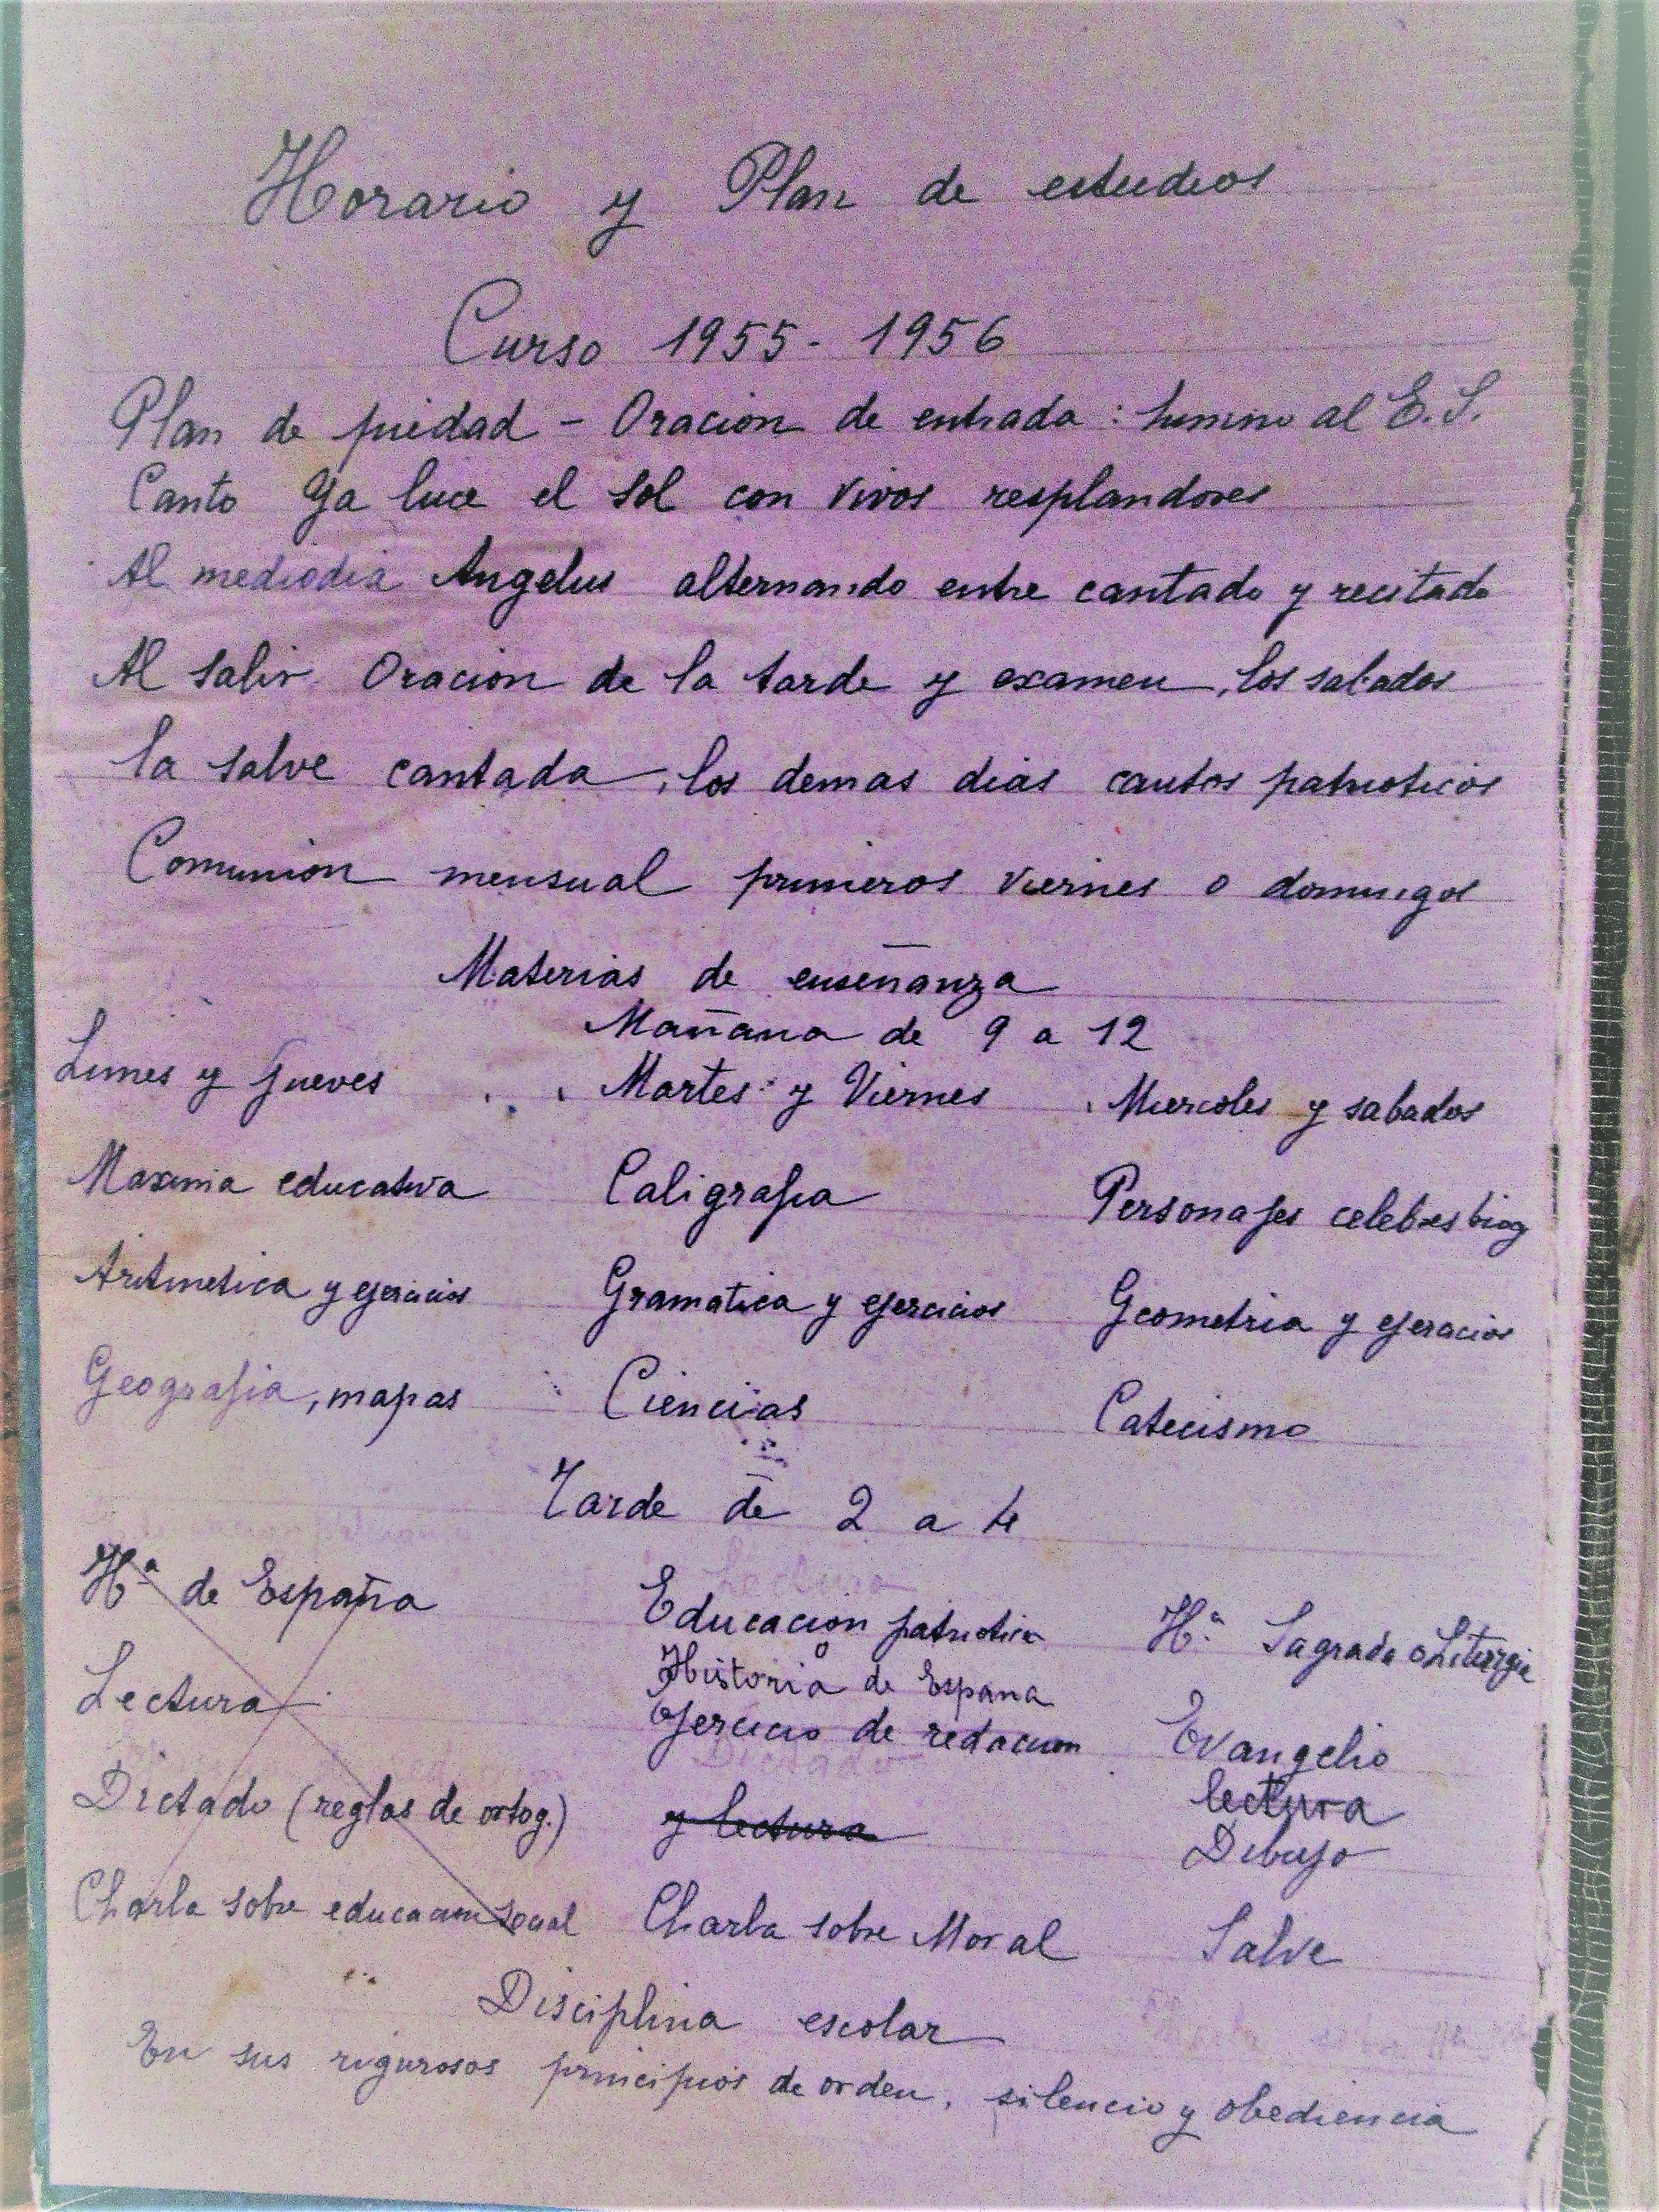 Horario y Plan de estudios
Curso 1955-1956
Plan de piedad - Oracion de entrada: himno al E.S.
Canto Ya luce el sol con vivos resplandores
Al mediodia Angelus alternando entre cantado y recitado
Al salir Oracion de la tarde y examen, los sabados
la salve cantada, los demas dias cantos patrioticos
Comunion mensual primeros viernes o domingos
Materias de enseñanza
Mañana de 9 a 12
Lunes y Jueves Martes y Viernes Miercoles y sabados
Maxima educativa Caligrafia Personajes celebres biog
Aritmetica y ejercicios Gramatica y ejercicios Geometria y ejercicios
Geografia, mapas Ciencias Catecismo
Tarde de 2 a 4
Hª de España Educacion patriotica Hª Sagrada o Liturgia
o
Historia de España
Lectura Ejercicio de redacion Evangelio
lectura
Dictado (reglas de ortog.) y lectura Dibujo
Charla sobre educacion social Charla sobre Moral Salve
Disciplina escolar
En sus rigurosos principios de orden, silencio y obediencia